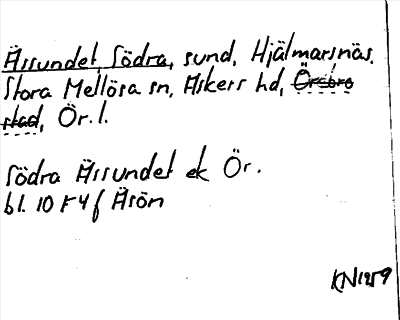 Ässundet, Södra, sund, Hjälmarsnäs,
Stora Mellösa sn, Askers hd, Örebro
stad, Ör. l.
Södra Ässundet ek Ör.
bl. 10 F 4 f Äsön
KN 1959